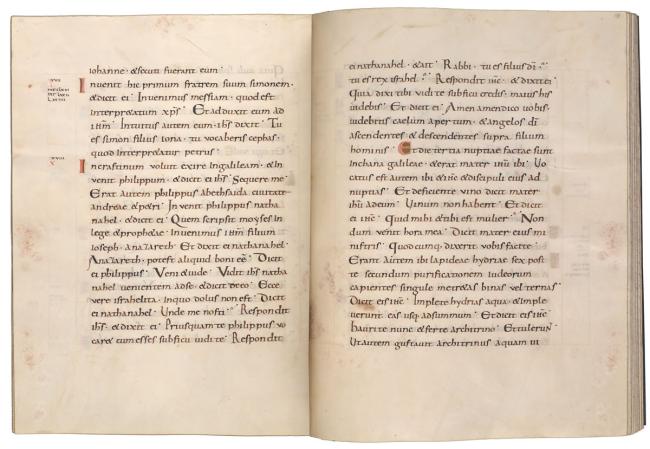 iohanne · & secuti fuerant eum ·
Inuenit hic primum fratrem suum simonem ·
& dicit ei · Inuenimus messiam · quod est
interpretatum xps · Et adduxit eum ad
ihm · Intuitus autem eum · ihs dixit · Tu
es simon filius iona · tu vocaberis cephas ·
quod interpretatur petrus ·
In crastinum voluit exire in galileam · & in
venit philippum · & dicit ei ihs Sequere me ·
Erat autem philippus abethsaida ciuitate
andreae & petri · In venit philippus natha
nahel · & dicit ei · Quem scripsit moyses in
lege & prophetae · Inuenimus ihm filium
ioseph · Anazareth · Et dixit ei nathanahel ·
Anazareth · potest aliquid boni ee · Dicit
ei philippus · Veni & uide · Vidit ihs natha
nahel uenientem ad se · & dicit de eo · Ecce
vere israhelita · in quo dolus non est · Dicit
ei nathanahel · Unde me nosti · Respondit
ihs · & dixit ei · Priusquam te philippus vo
car& cum esses sub ficu uidi te · Respondit
ei nathanahel · & ait · Rabbi · tu es filius di ·
tu es rex israhel · Respondit ihs · & dixit ei ·
Quia dixi tibi vidi te sub ficu credis · maius his
uidebis · Et dicit ei · Amen amen dico uobis ·
uidebitis caelum apertum · & angelos di
ascendentes & descendentes supra filium
hominis · Et die tertia nuptiae factae sunt
in chana galileae · & erat mater ihu ibi · Uo
catus est autem ibi & ihs & discipuli eius ad
nuptias · Et deficiente vino dicit mater
ihu ad eum · Uinum non habent · Et dicit
ei ihs · Quid mihi & tibi est mulier · Non
dum venit hora mea · Dicit mater eius mi
nistris · Quodcumq; dixerit vobis facite ·
Erant autem ibi lapideae hydriae sex posi
te secundum purificationem iudeorum
capientes singule metretas binas vel ternas ·
Dicit eis ihs · Implete hydrias aqua · & imple
uerunt eas usq; ad summum · Et dicit eis ihs
haurite nunc & ferte architrino · Et tulerunt ·
Ut autem gustauit architrinus aquam ui